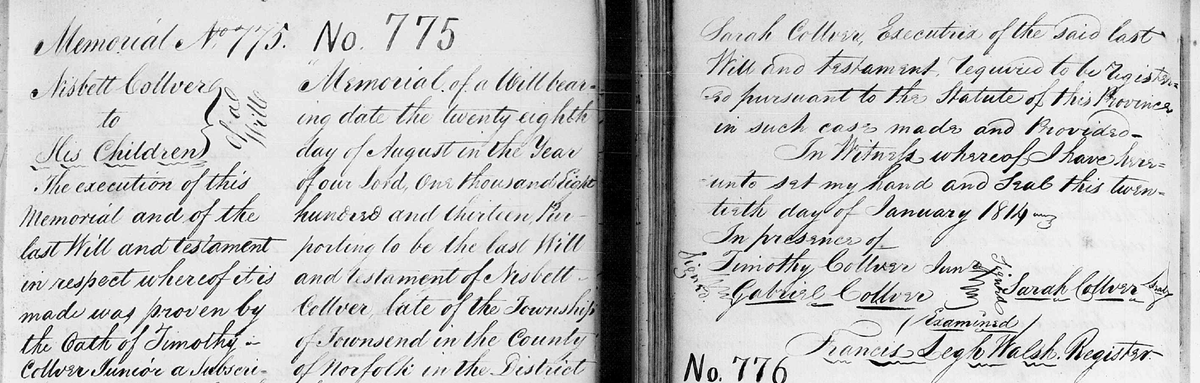 Memorial No. 775.
Nisbett Collver
to
His Children
of a
Will
The execution of this
Memorial and of the
last Will and testament
in respect whereof it is
made was proven by
the Oath of Timothy
Collver Junior a Subscri-
No. 775
Memorial of a Will bear-
ing date the twenty eighth
day of August in the Year
of our Lord, One thousand Eight
hundred and thirteen, Pur-
porting to be the last Will
and testament of Nisbett
Collver, late of the Township
of Townsend in the County
of Norfolk in the District
Sarah Collver, Executrix of the said last
Will and testament, required to be Register-
ed pursuant to the Statute of this Province
in such case made and Provided-
In Witness whereof I have here=
unto set my hand and Seal this twen-
tieth day of January 1814
In presence of
Signed
Timothy Collver Jun
Gabriel Collver
Signed
Sarah Collver
(Examined)
Francis Legh Walsh. Register
No. 776